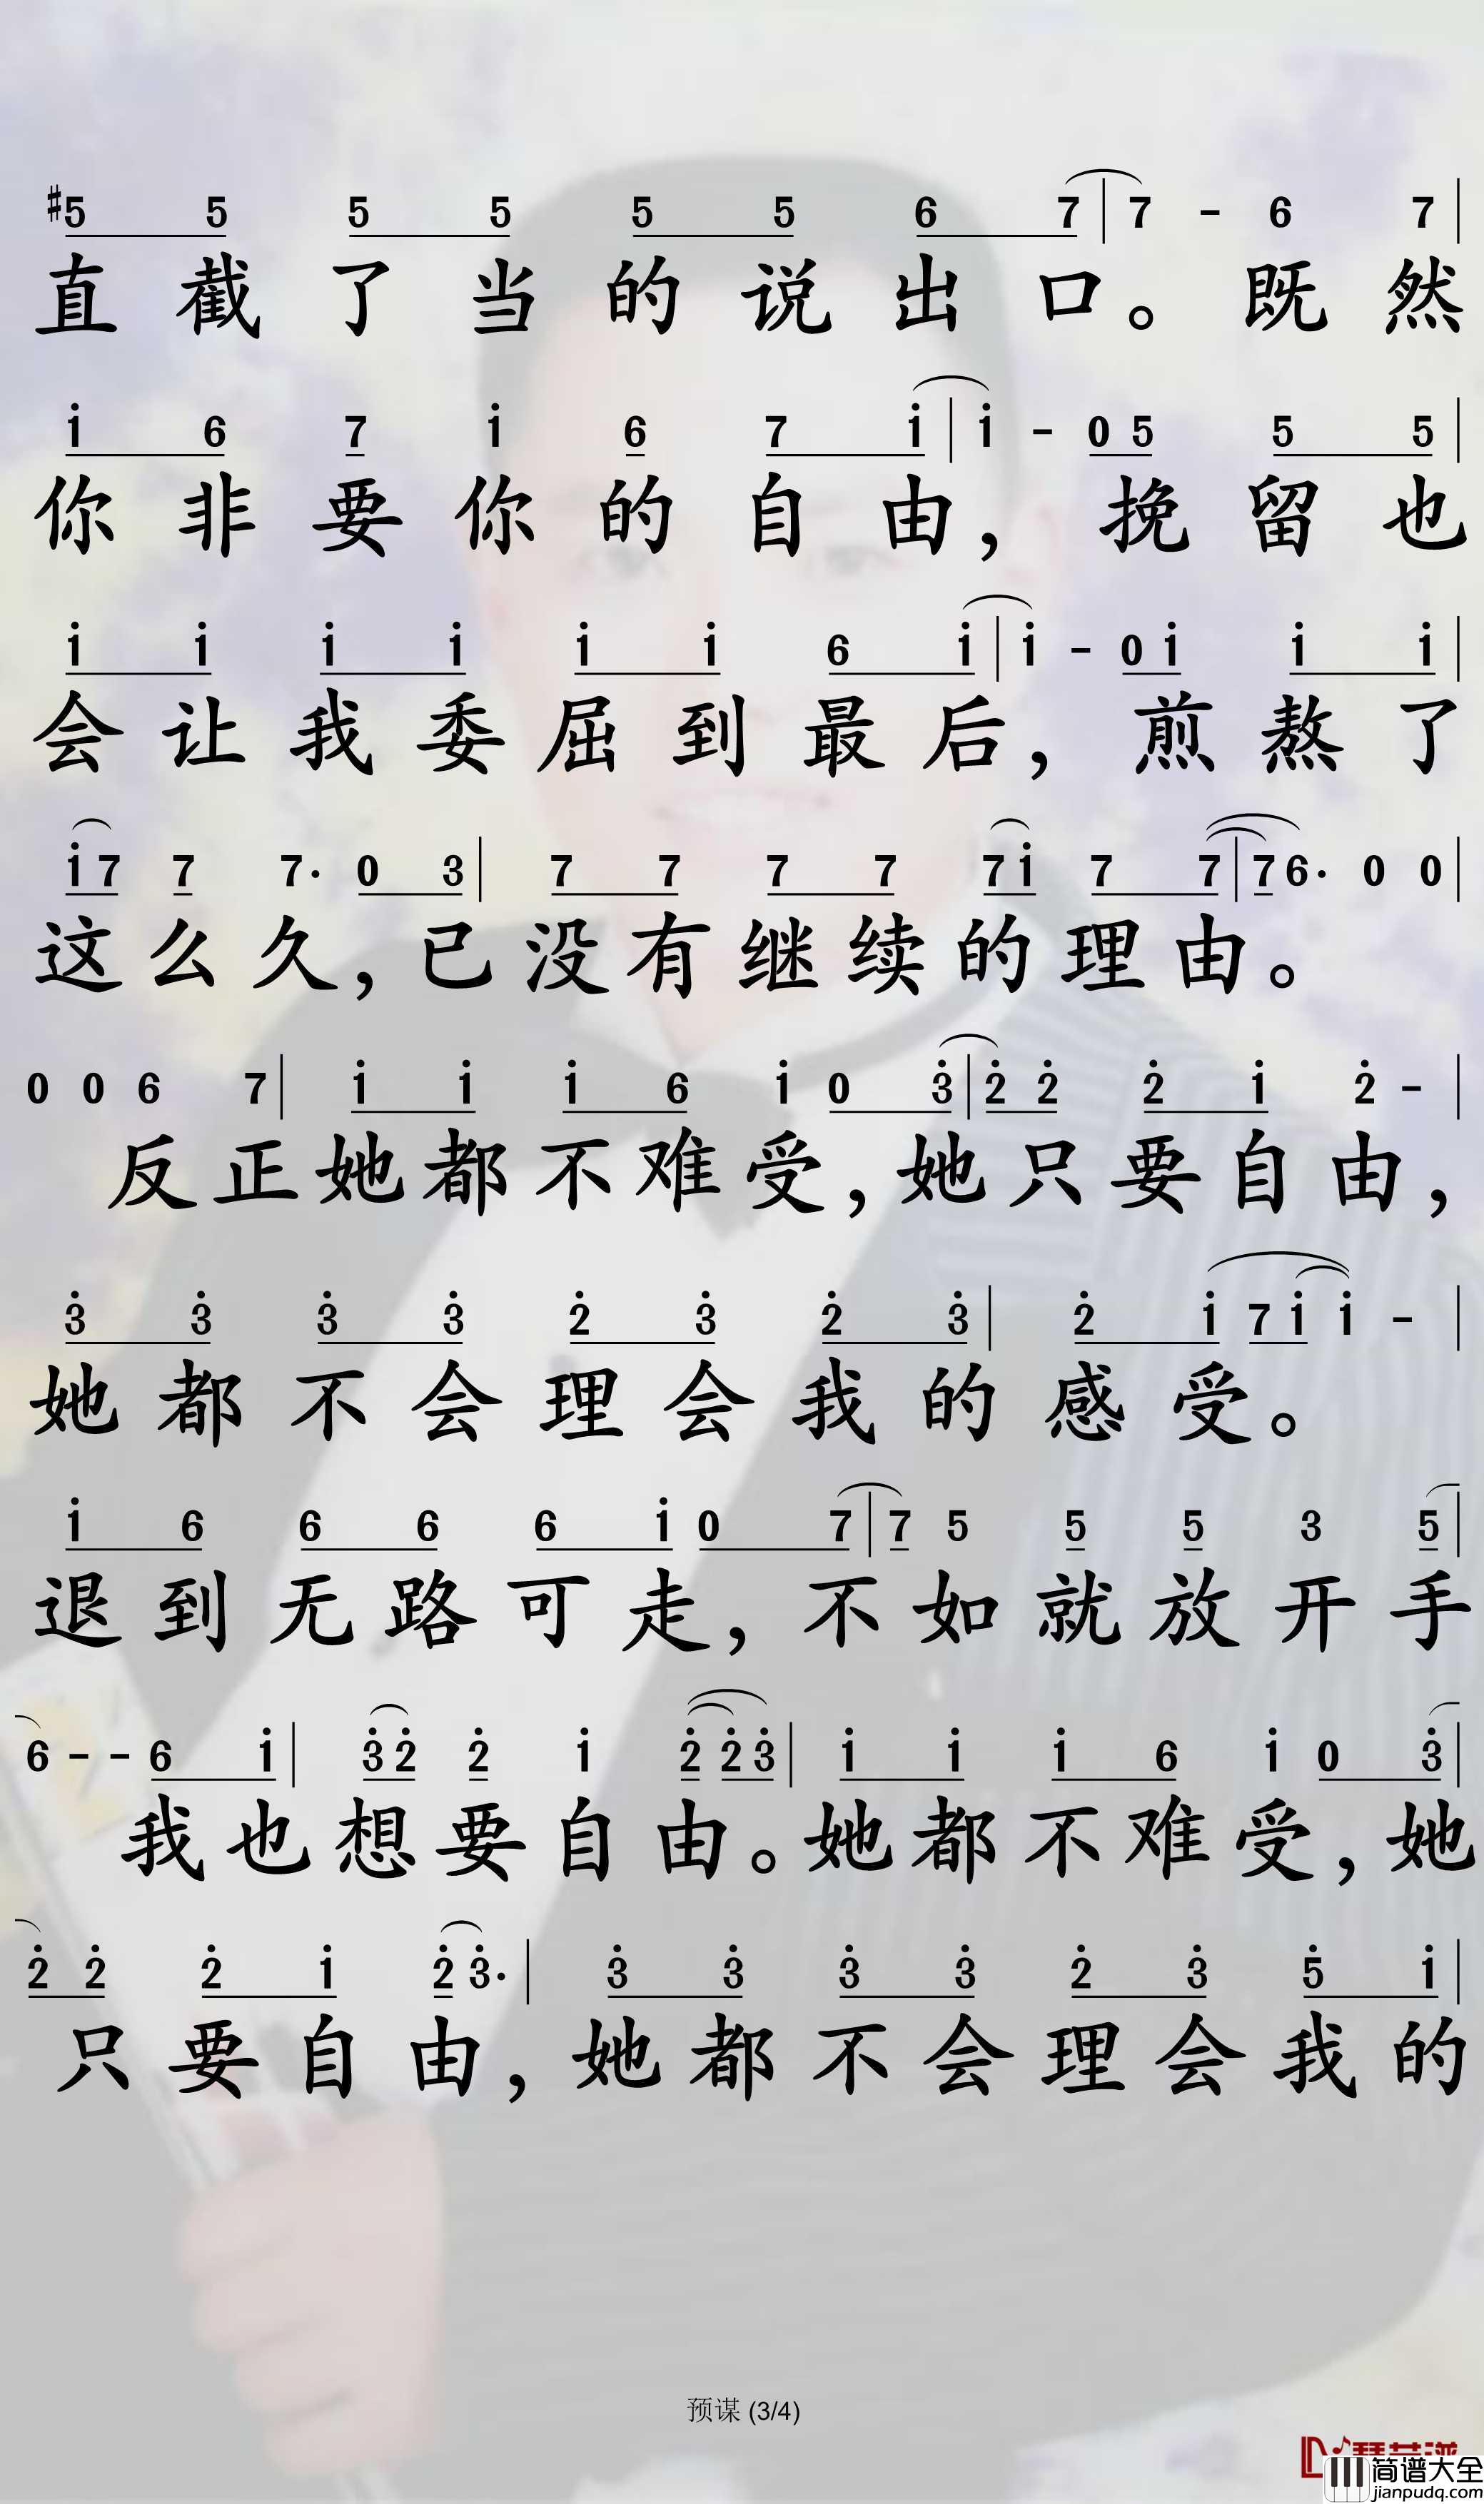 #5 5 5 5 5 5 6 7 | 7 - 6 7 |
直截了当的说出口。既然
i 6 7 i 6 7 i | i - 0 5 5 5 |
你非要你的自由，挽留也
i i i i i i 6 i | i - 0 i i i |
会让我委屈到最后，煎熬了
i 7 7 7· 0 3 | 7 7 7 7 7 i 7 7 | 7 6· 0 0 |
这么久，已没有继续的理由。
0 0 6 7 | i i i 6 i 0 3̇ | 2̇ 2̇ 2̇ i 2̇ - |
反正她都不难受，她只要自由，
3̇ 3̇ 3̇ 3̇ 2̇ 3̇ 2̇ 3̇ | 2̇ i 7 i i - |
她都不会理会我的感受。
i 6 6 6 6 i 0 7 | 7 5 5 5 3 5 |
退到无路可走，不如就放开手
6 - - 6 i | 3̇ 2̇ 2̇ i 2̇ 2̇ 3̇ | i i i 6 i 0 3̇ |
我也想要自由。她都不难受，她
2̇ 2̇ 2̇ i 2̇ 3̇· | 3̇ 3̇ 3̇ 3̇ 2̇ 3̇ 5̇ i |
只要自由，她都不会理会我的
预谋 (3/4)
简谱大全
jianpudq.com